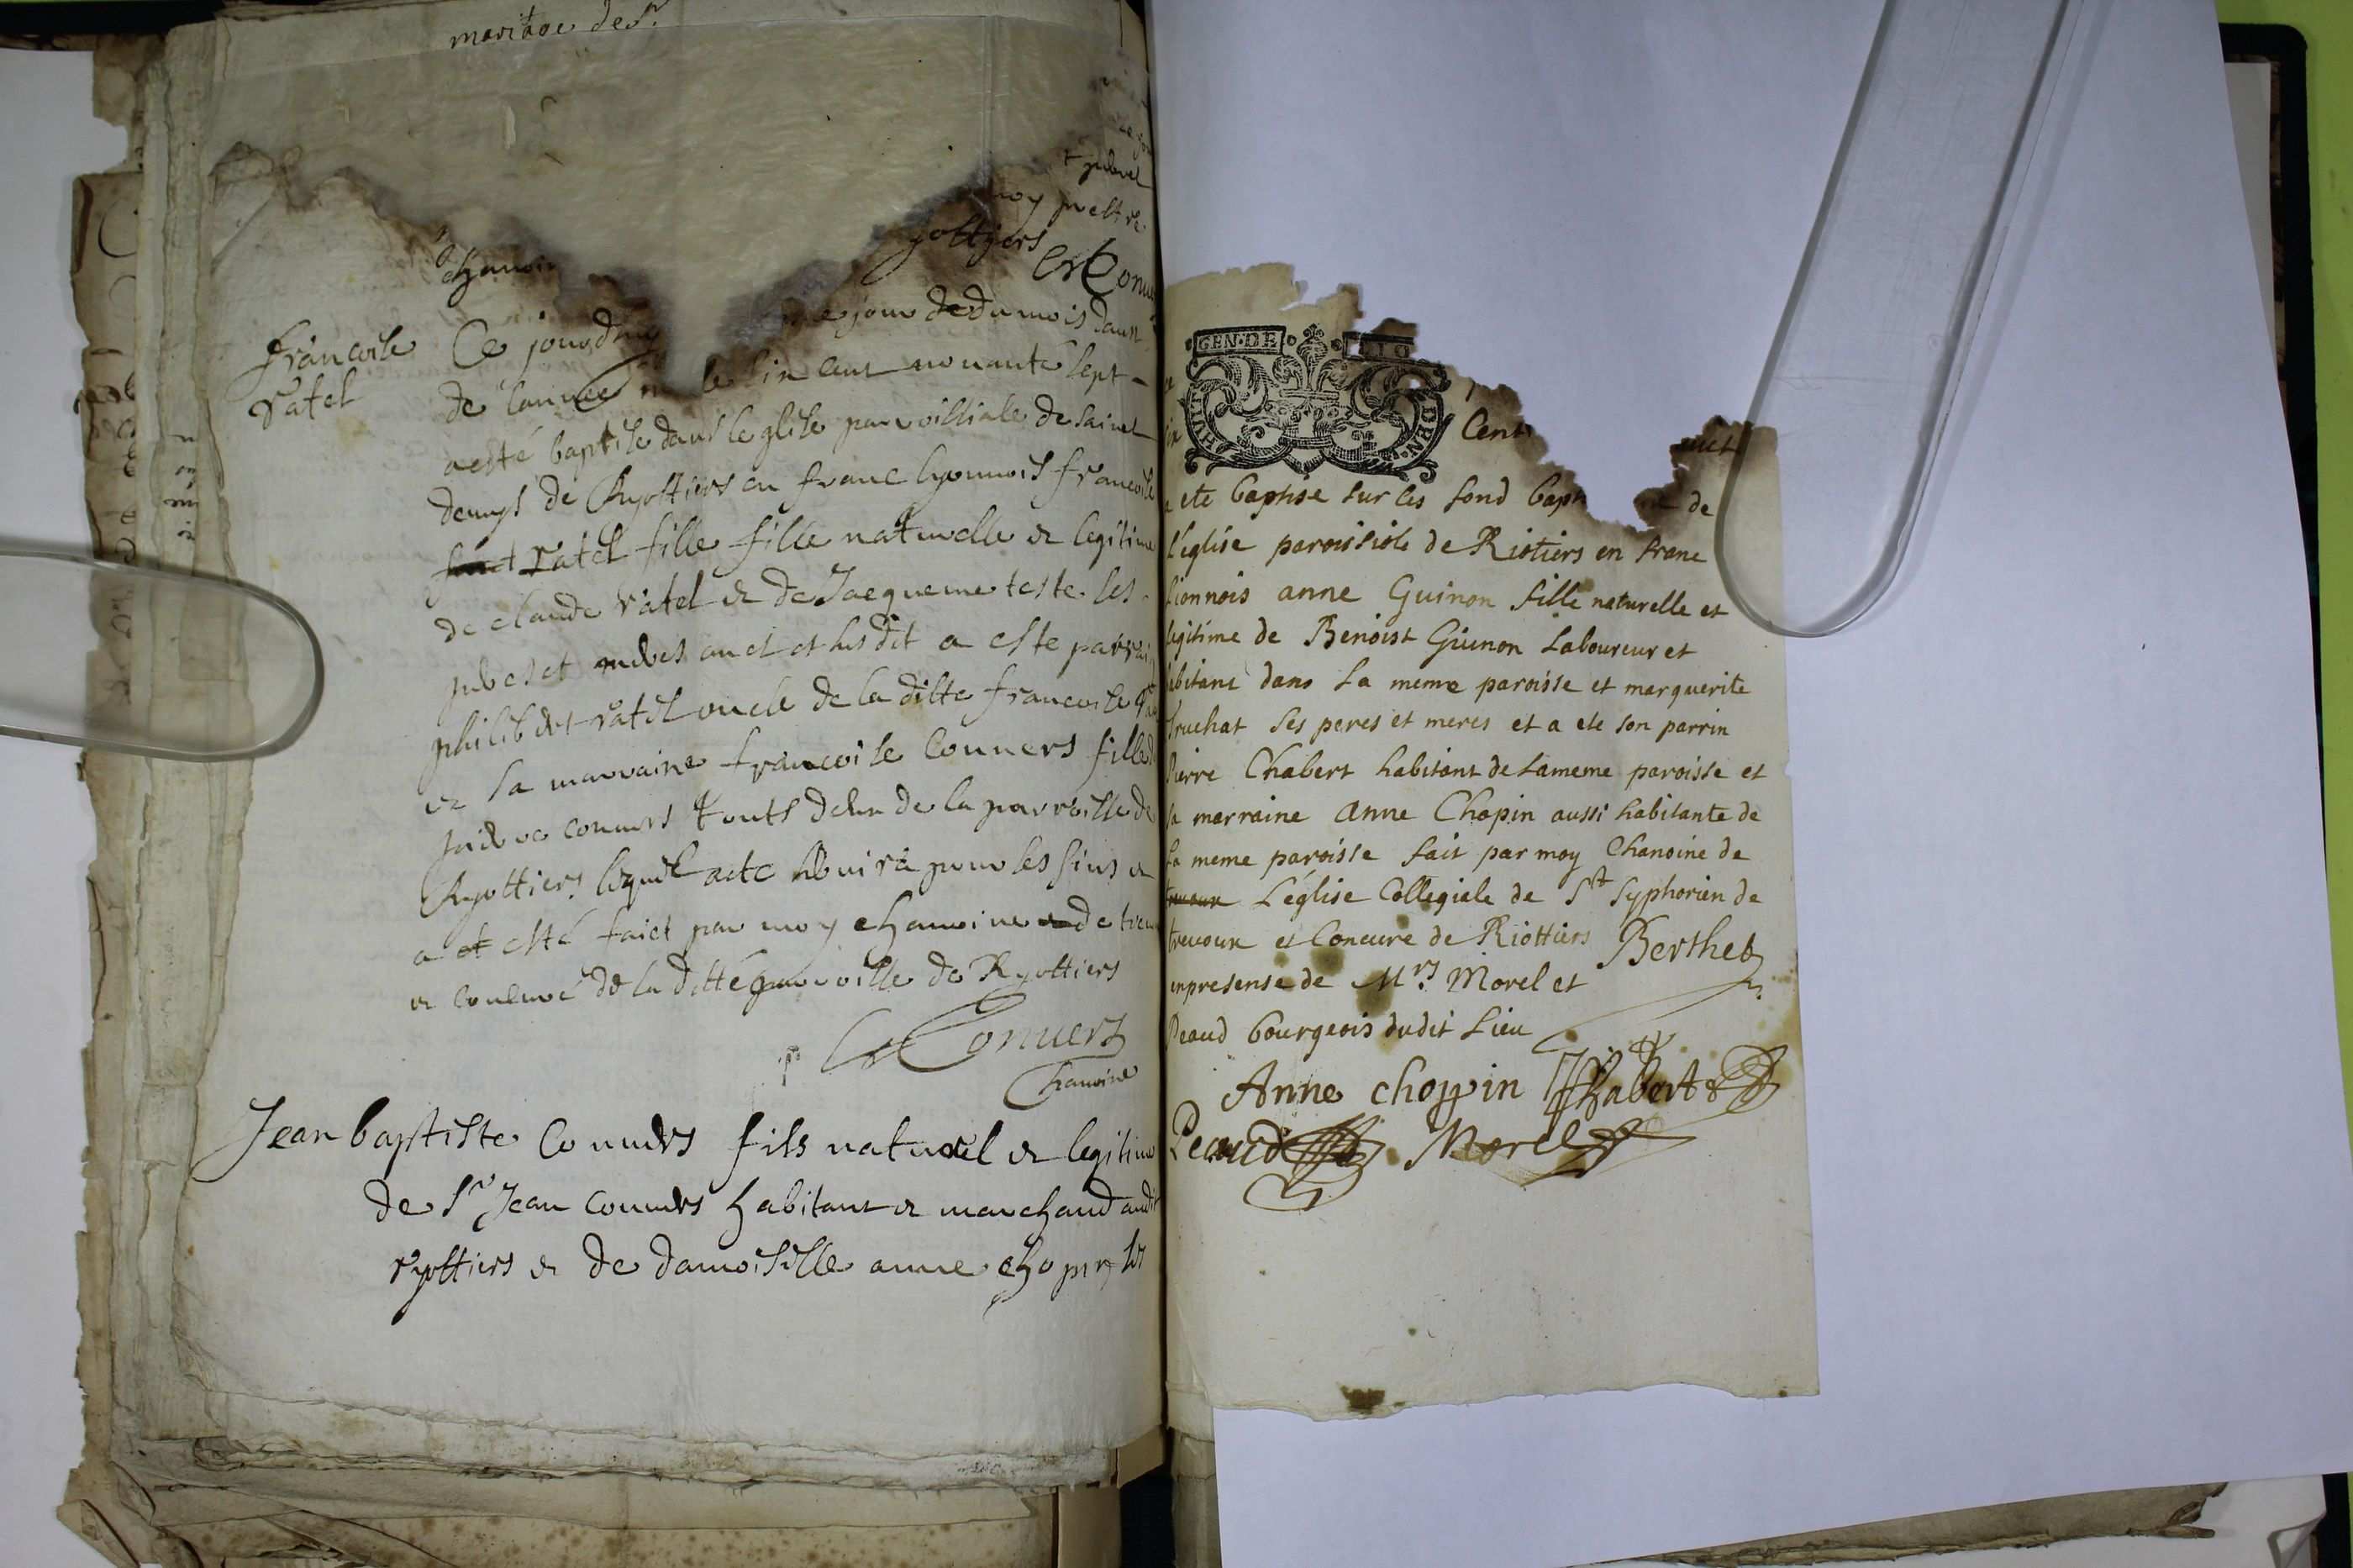 mariage de Sr
prestre
chanoin
Ce jourdhuy jour de du mois daust
françoise
ratel
de lannee mille six cent nonante sept
a esté baptise dans leglise parroissiale de sainct
denys de Ryottiers en franc lyonnois françoise
ratel fille fille naturelle et legitime
de claude ratel et de Jacqueme teste ses
peres et meres a este parrain
philibert ratel oncle de la ditte françoise
et sa marraine françoise Conuers fille
conuers touts deux de la parroisse de
Ryottiers lequel acte seruira pour les fins et
a et esté faict par moy chanoine de
et concuré de la ditte parroisse de Ryottiers
Conuers
Chanoine
Jean baptiste Conuers fils naturel et legitime
de Sr Jean conuers habitant et marchand audit
ryottiers et de damoiselle anne chopin ses
GEN·DE
HUIT
DERN·
Cent
a ete baptise sur les fond bapt de
l'eglise paroissiole de Riotiers en franc
lionnois anne Guinon fille naturelle et
legitime de Benoist Guinon Laboureur et
abitant dans La meme paroisse et marguerite
truchat Ses peres et meres et a ete son parrin
Pierre Chabert habitant de Lameme paroisse et
sa marraine anne Chopin aussi habitante de
La meme paroisse fait par moy Chanoine de
treuoux L'église Collegiale de St Syphorien de
treuoux et Concure de Riottiers Berthet
enpresense de Mrs Morel et
Peaud bourgeois dudit Lieu
Anne choppin Chabert
Peaud Morel